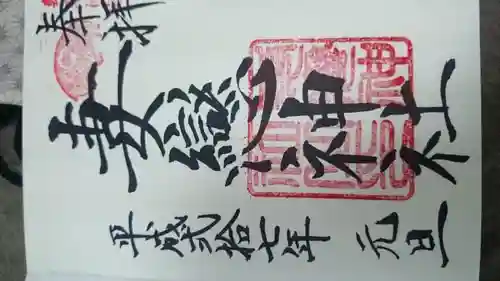 奉拝
妻戀神社
平成弐拾七年 元旦